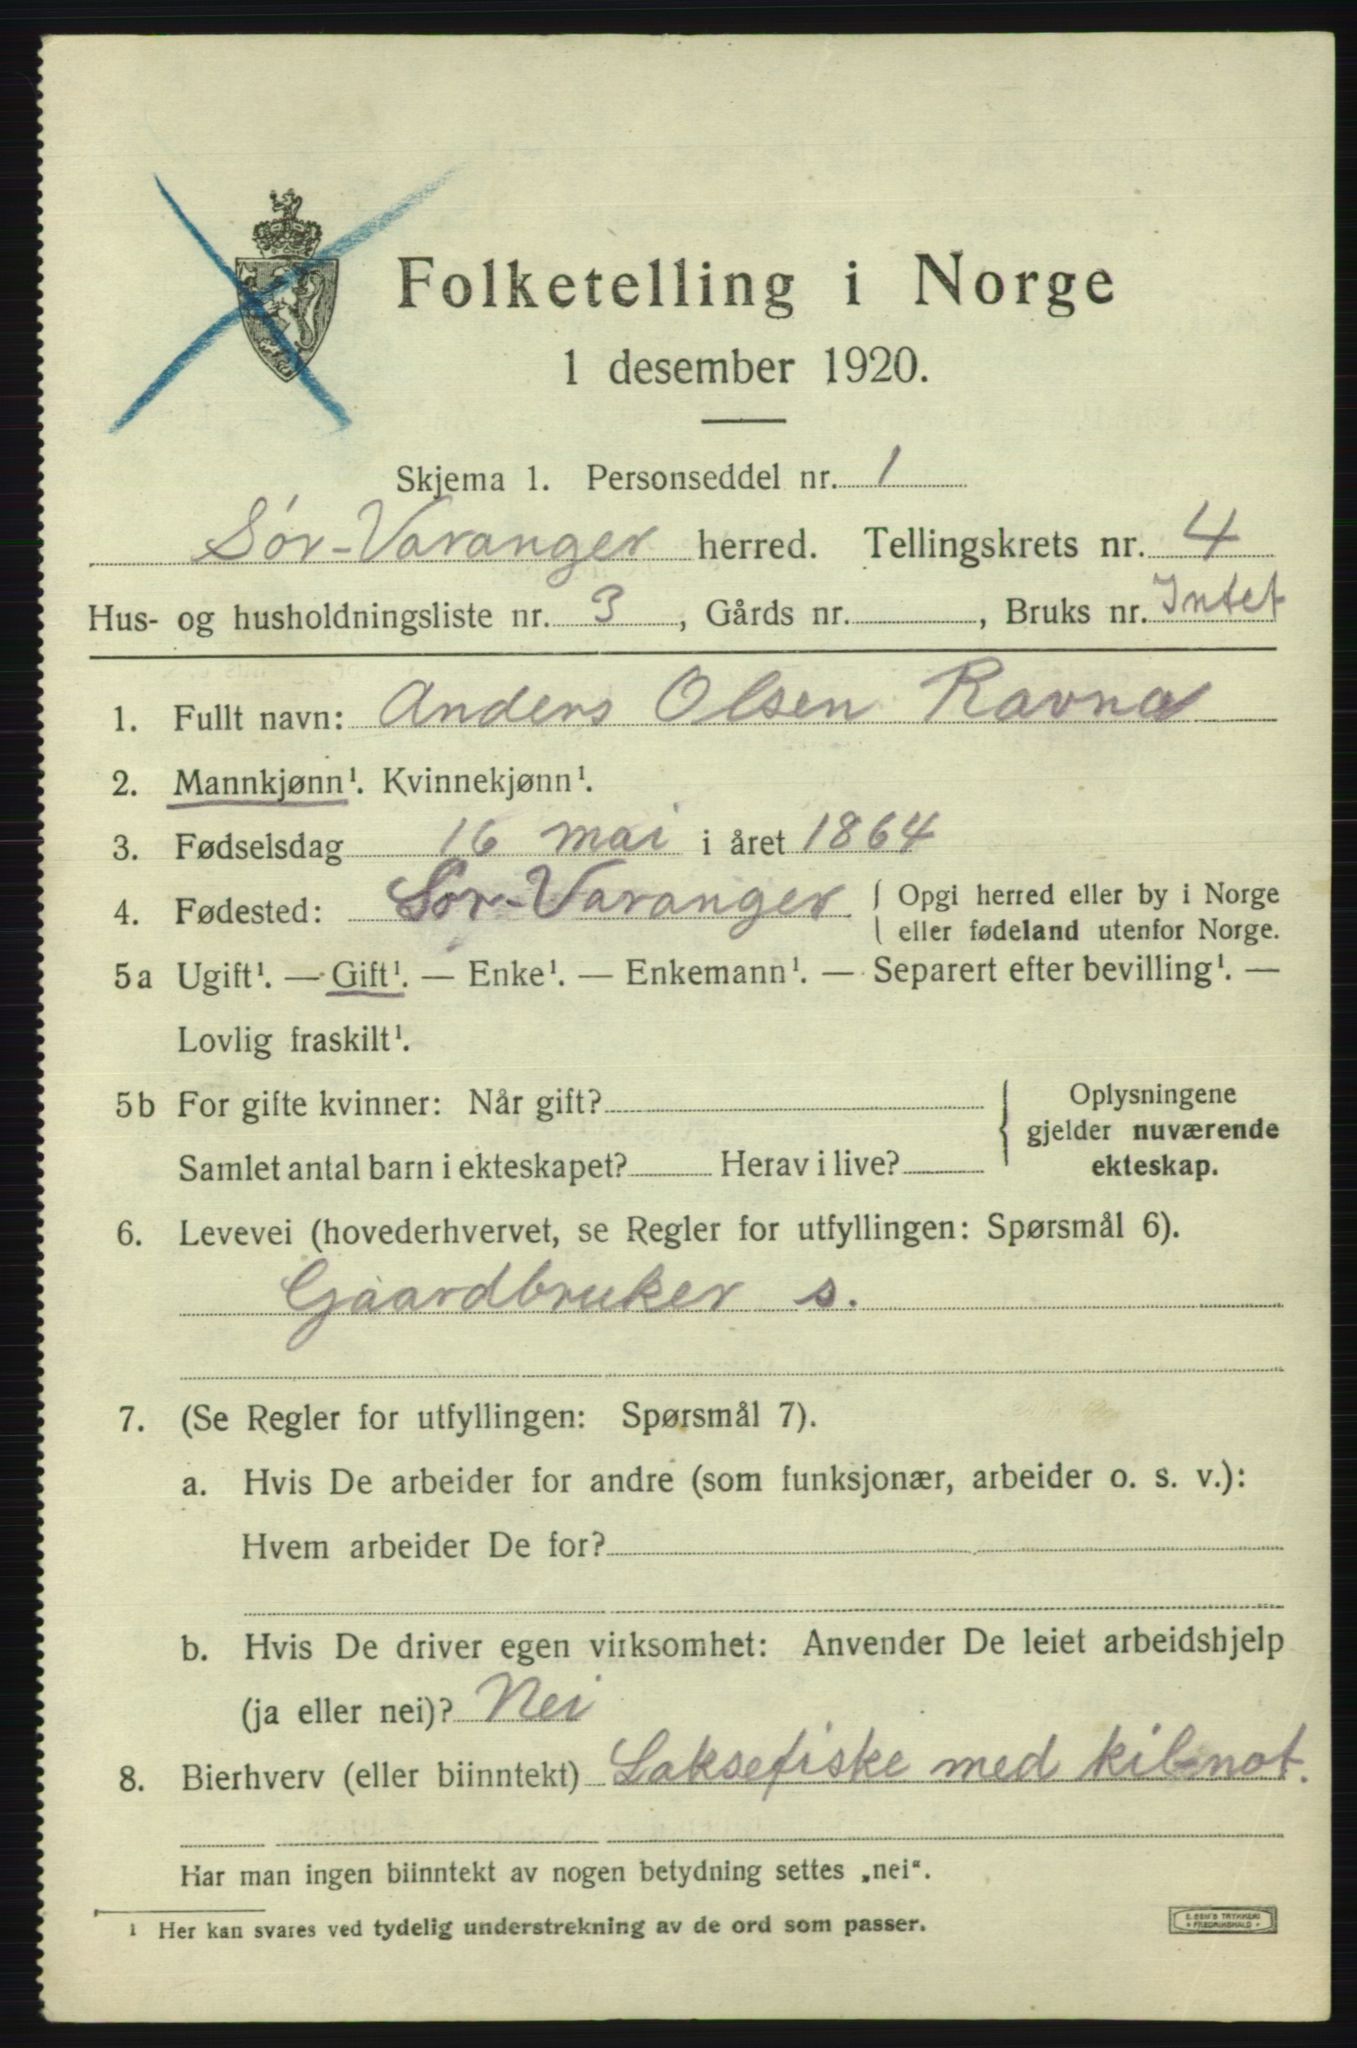 Folketelling i Norge
1 desember 1920.
Skjema 1. Personseddel nr. 1
Sør-Varanger herred. Tellingskrets nr. 4
Hus- og husholdningsliste nr. 3, Gårds nr. , Bruks nr. Intet
1. Fullt navn: Anders Olsen Ravna
2. Mannkjønn¹. Kvinnekjønn¹.
3. Fødselsdag 16 mai i året 1864
4. Fødested: Sør-Varanger { Opgi herred eller by i Norge
eller fødeland utenfor Norge.
5a Ugift¹. — Gift¹. — Enke¹. — Enkemann¹. — Separert efter bevilling¹. —
Lovlig fraskilt¹.
5b For gifte kvinner: Når gift? { Oplysningene
gjelder nuværende
Samlet antal barn i ekteskapet? Herav i live? ekteskap.
6. Levevei (hovederhvervet, se Regler for utfyllingen: Spørsmål 6).
Gaardbruker s.
7. (Se Regler for utfyllingen: Spørsmål 7).
a. Hvis De arbeider for andre (som funksjonær, arbeider o. s. v.):
Hvem arbeider De for?
b. Hvis De driver egen virksomhet: Anvender De leiet arbeidshjelp
(ja eller nei)? Nei
8. Bierhverv (eller biinntekt) Laksefiske med kilenot.
Har man ingen biinntekt av nogen betydning settes „nei“.
¹ Her kan svares ved tydelig understrekning av de ord som passer.
FREDRIKSHALD